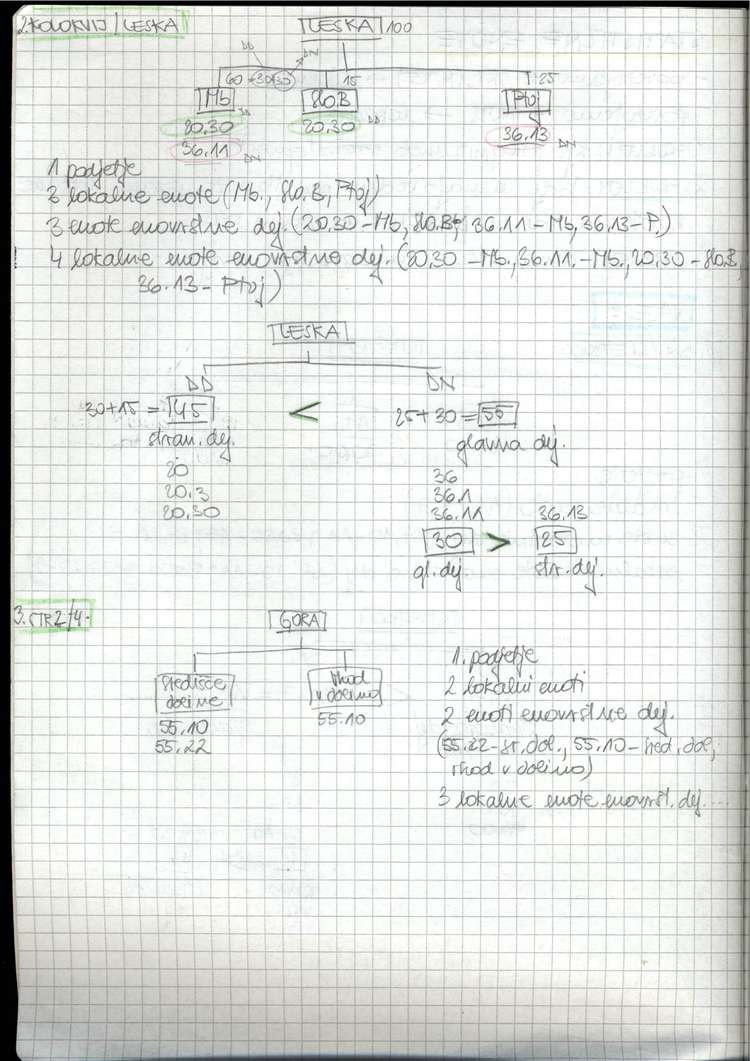 2. KOLOKVIJ / LESKA
LESKA 100
DD DN
60 = 30+30 15 25
Mb Slo.B Ptuj
DD
20.30 20.30 DD 36.13 DN
36.11 DN
1 podjetje
3 lokalne enote (Mb., Slo.B, Ptuj)
3 enote enovrstne dej. (20.30 - Mb, Slo.B, 36.11 - Mb, 36.13 - P.)
! 4 lokalne enote enovrstne dej. (20.30 - Mb., 36.11. - Mb., 20.30 - Slo.B,
36.13 - Ptuj)
LESKA
DD DN
30+15 = 45 < 25+30 = 55
stran. dej. glavna dej.
20 36
20.3 36.1
20.30 36.11 36.13
30 > 25
gl. dej. str. dej.
3. STR 2/4.
GORA
Središče doline Vhod v dolino
55.10 55.10
55.22
1. podjetje
2 lokalni enoti
2 enoti enovrstne dej.
(55.22 - sr. dol., 55.10 - sred. dol.,
vhod v dolino)
3 lokalne enote enovrst. dej. ....